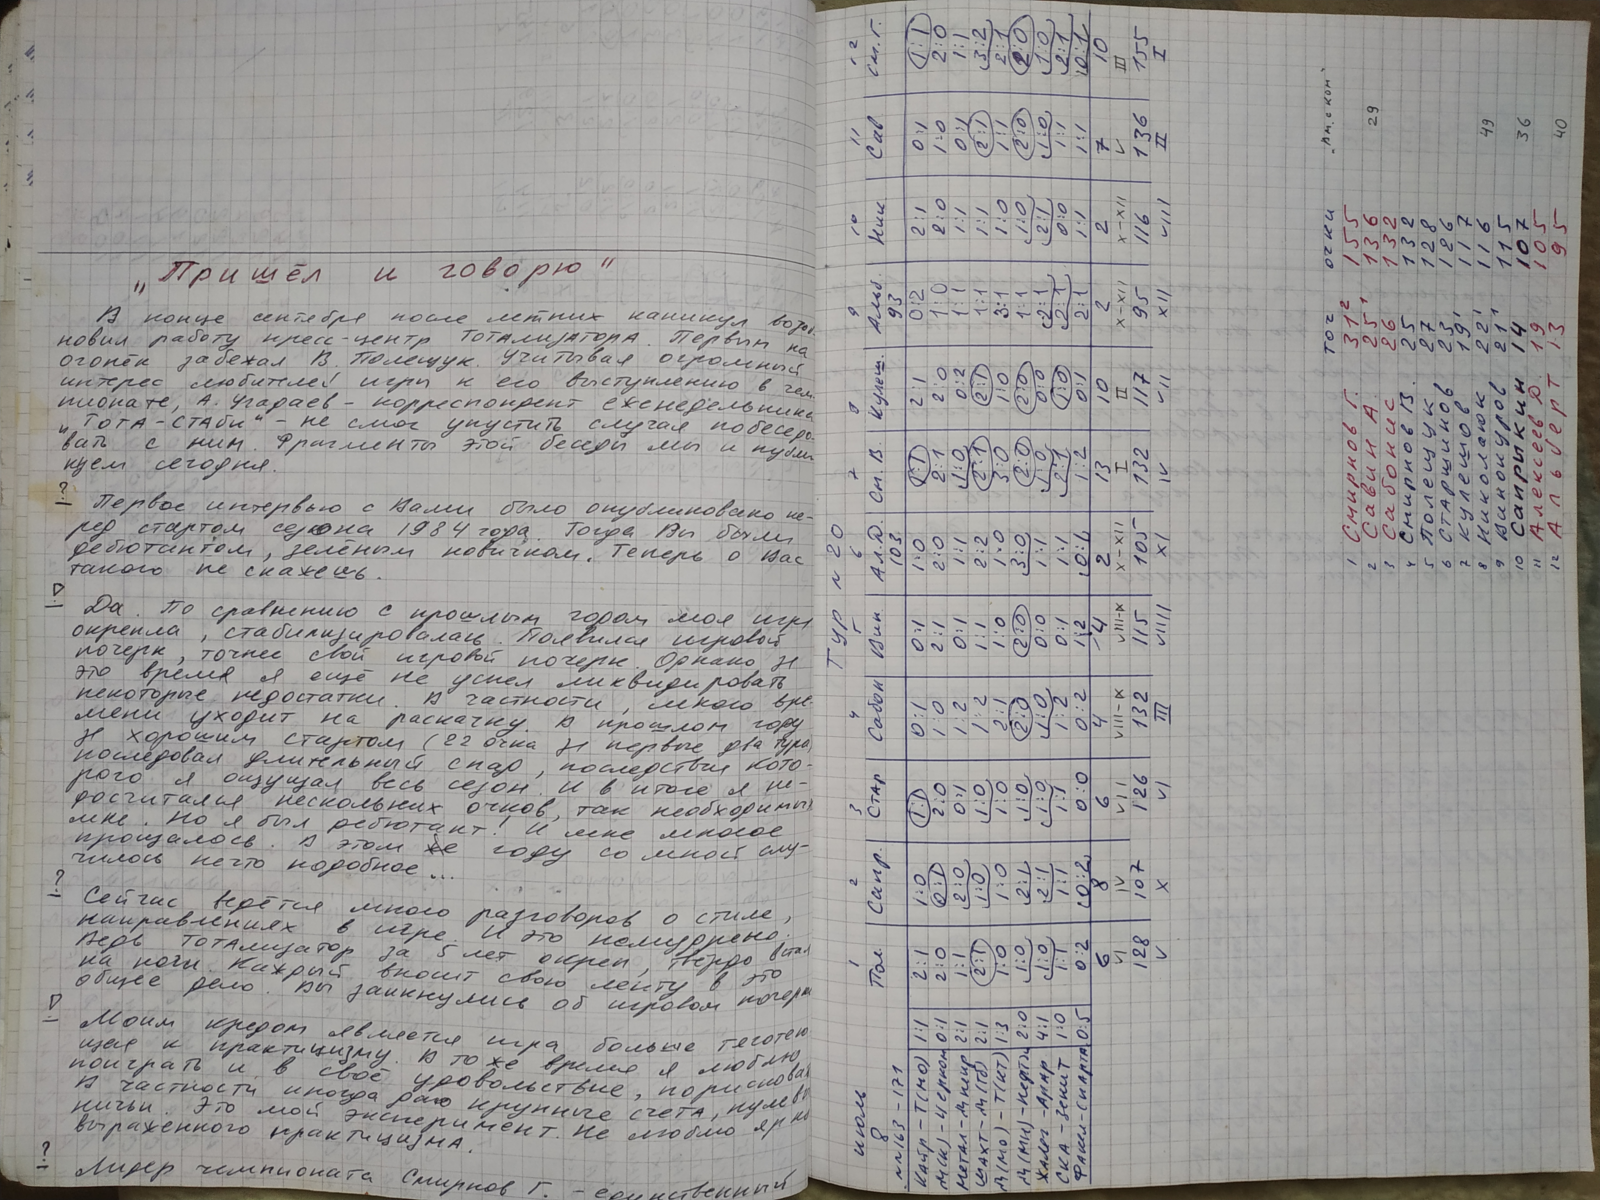 „Пришёл и говорю"
В конце сентября после летних каникул возоб-
новил работу пресс-центр ТОТАлизАТОРА. Первым на
огонёк забежал В. Полещук. Учитывая огромный
интерес любителей игры к его выступлению в чем-
пионате, А. Угадаев – корреспондент еженедельника
„ТОТА-СТАби" – не смог упустить случая побеседо-
вать с ним. Фрагменты этой беседы мы и публи
куем сегодня.
? Первое интервью с Вами было опубликовано пе-
ред стартом сезона 1984 года. Тогда Вы были
дебютантом, зелёным новичком. Теперь о Вас
такого не скажешь.
Да. По сравнению с прошлым годом моя игра
окрепла, стабилизировалась. Появился игровой
почерк, точнее свой игровой почерк. Однако за
это время я ещё не успел ликвидировать
некоторые недостатки. В частности, много вре-
мени уходит на раскачку. В прошлом году
за хорошим стартом (22 очка за первые два тура)
последовал длительный спад, последствия кото-
рого я ощущал весь сезон. И в итоге я не-
досчитался нескольких очков, так необходимых
мне. Но я был дебютант! И мне многое
прощалось. В этом же году со мной слу-
чилось нечто подобное...
? Сейчас ведётся много разговоров о стиле,
направлениях в игре. И это немудрено.
Ведь ТОТАлизатор за 5 лет окреп, твёрдо встал
на ноги. Каждый вносит свою лепту в это
общее дело. Вы заикнулись об игровом почерке
Моим кредом является игра больше тяготею-
щая к практицизму. В то же время я люблю
поиграть и в своё удовольствие, порисковать
В частности иногда даю крупные счета, нулевые
ничьи. Это мой эксперимент. Не люблю ярко
выраженного практицизма.
? Лидер чемпионата Смирнов Г. – единственный
ТУР № 20
июль 1 2 3 4 5 6 7 9 10 11 12
8 Пол. Сапр. Стар Сабон Вин Ал.Д. См.В. Кулеш. Альб. Ник Сав См.Г.
№№163–171 103 93
Кайр – Т(МО) 1:1 2:1 1:0 1:1 0:1 0:1 1:0 1:1 2:1 0:2 2:1 0:1 1:1
Д(К) – Черном 0:1 2:0 0:1 2:0 1:0 2:1 2:0 2:1 2:0 1:0 2:0 1:0 2:0
Метал – Днепр 2:1 1:1 2:0 0:1 1:2 0:1 1:1 1:0 0:2 1:1 1:1 0:1 1:1
Шахт – Д(Тб) 2:1 2:1 1:0 1:0 1:2 1:1 2:2 2:1 2:1 1:1 1:1 2:1 3:2
Д(МО) – Т(КТ) 1:3 1:0 1:0 1:0 2:1 1:0 1:0 3:0 1:0 3:1 1:0 1:1 2:1
Д(МН) – Нефтчи 2:0 1:0 2:1 1:0 2:0 2:0 3:0 2:0 2:0 1:1 1:0 2:0 2:0
Жальг – Арар 4:1 1:0 2:1 1:0 1:0 0:0 1:1 1:0 0:0 2:1 2:1 1:0 1:0
СКА – Зенит 1:0 1:1 1:1 1:1 1:2 0:1 1:1 2:1 1:0 2:1 0:0 1:1 2:1
Факел – Спартак 0:5 0:2 0:2 0:0 0:2 1:2 0:1 1:2 0:1 2:1 1:1 1:1 0:1
6 8 6 4 4 2 13 10 2 2 7 10
VI IV VII VIII-IX VIII-IX X-XII I II X-XII X-XII V III
128 107 126 132 115 105 132 117 95 116 136 155
V X VI III VIIII XI IV VII XII VIII II I
ТОЧ ОЧКИ „Ам. скон"
1 Смирнов Г. 31² 155
2 Савин А. 25¹ 136 29
3 Сабонис 26 132
4 Смирнов В. 25 132
5 Полещук 27 128
6 Старшинов 23 126
7 Кулешов 19¹ 117
8 Николаюк 22¹ 116 49
9 Винокуров 21¹ 115
10 Сапрыкин 14 107 36
11 Алексеев Д. 19 105
12 Альберт 13 95 40